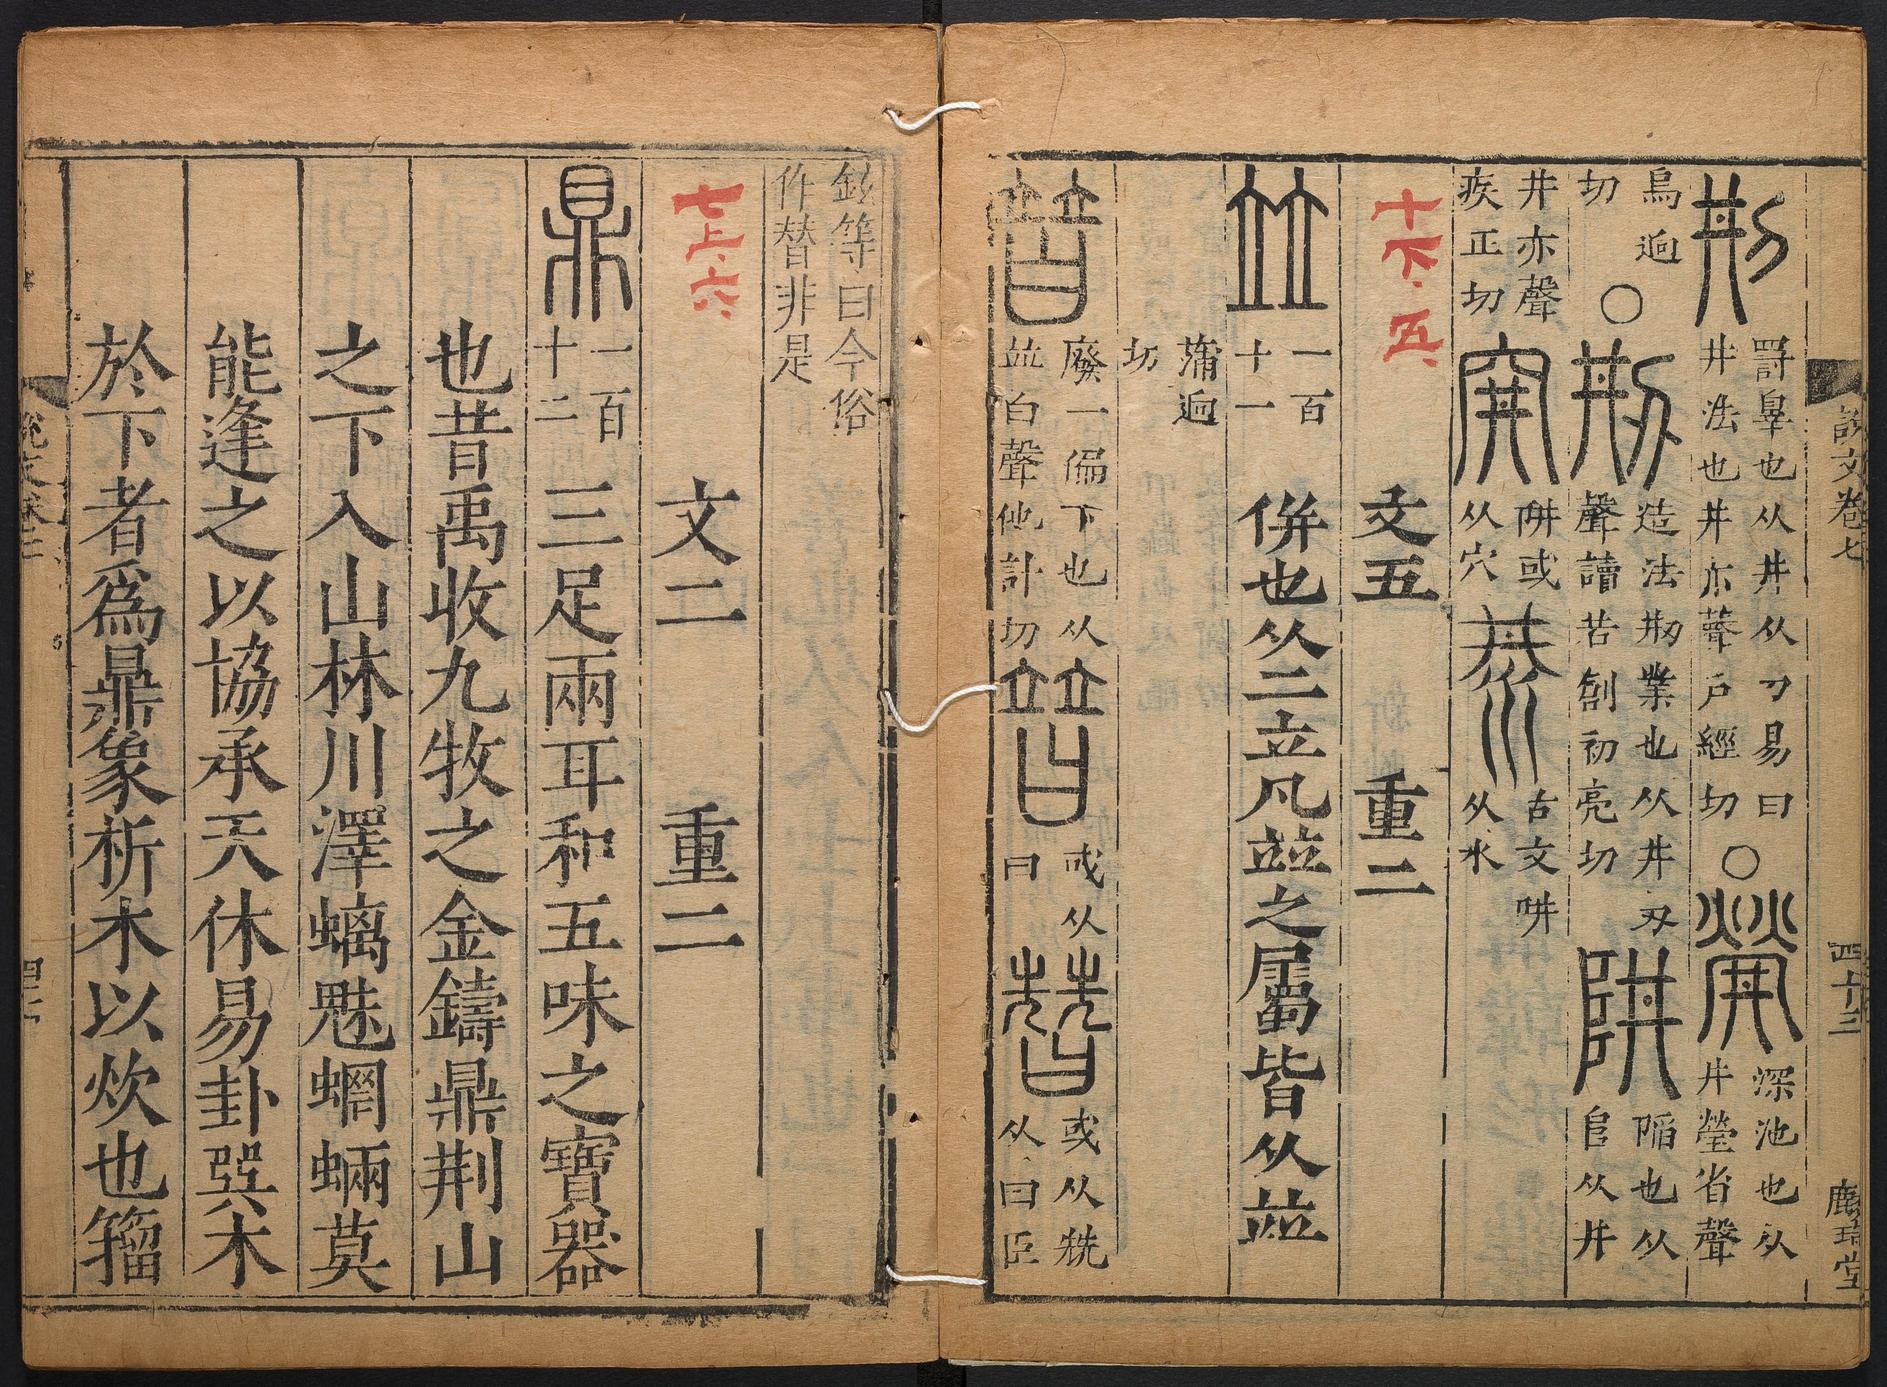 說文卷七 四十三
㓝 罰辠也从井从刀易曰井法也井亦聲戶經切 ○ 䁝 深池也从井瑩省聲
烏迥切 ○ 刱 造法刱業也从井刅聲讀若創初亮切 阱 陷也从𨸏从井
井亦聲疾正切 穽 阱或从穴 汬 古文阱从水
十下、五、 文五 重二
竝 一百十一 併也从二立凡竝之屬皆从竝
蒲迥切
暜 廢一偏下也从竝白聲他計切 𣈡 或从曰 朁 或从兟从曰臣
鉉等曰今俗作替非是
七上、六、 文二 重二
鼎 一百十二 三足兩耳和五味之寶器
也昔禹收九牧之金鑄鼎荆山
之下入山林川澤螭魅蝄蜽莫
能逢之以協承天休易卦巽木
於下者爲鼎象析木以炊也籀